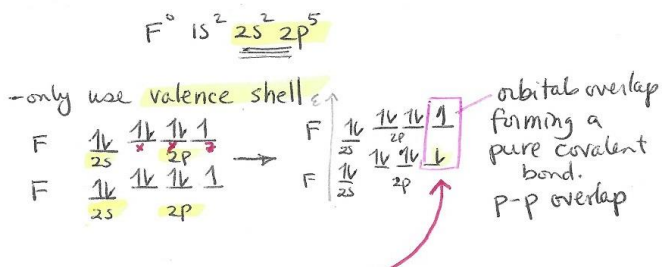 F° 1s² 2s² 2p⁵
-only use valence shell
ε
F 1↓ 1↓ 1↓ 1
2s x y 2p z
F 1↓ 1↓ 1↓ 1
2s 2p
F 1↓ 1↓ 1↓ 1
2s 2p
F 1↓ 1↓ 1↓ ↓
2s 2p
orbitals overlap
forming a
pure covalent
bond.
p-p overlap